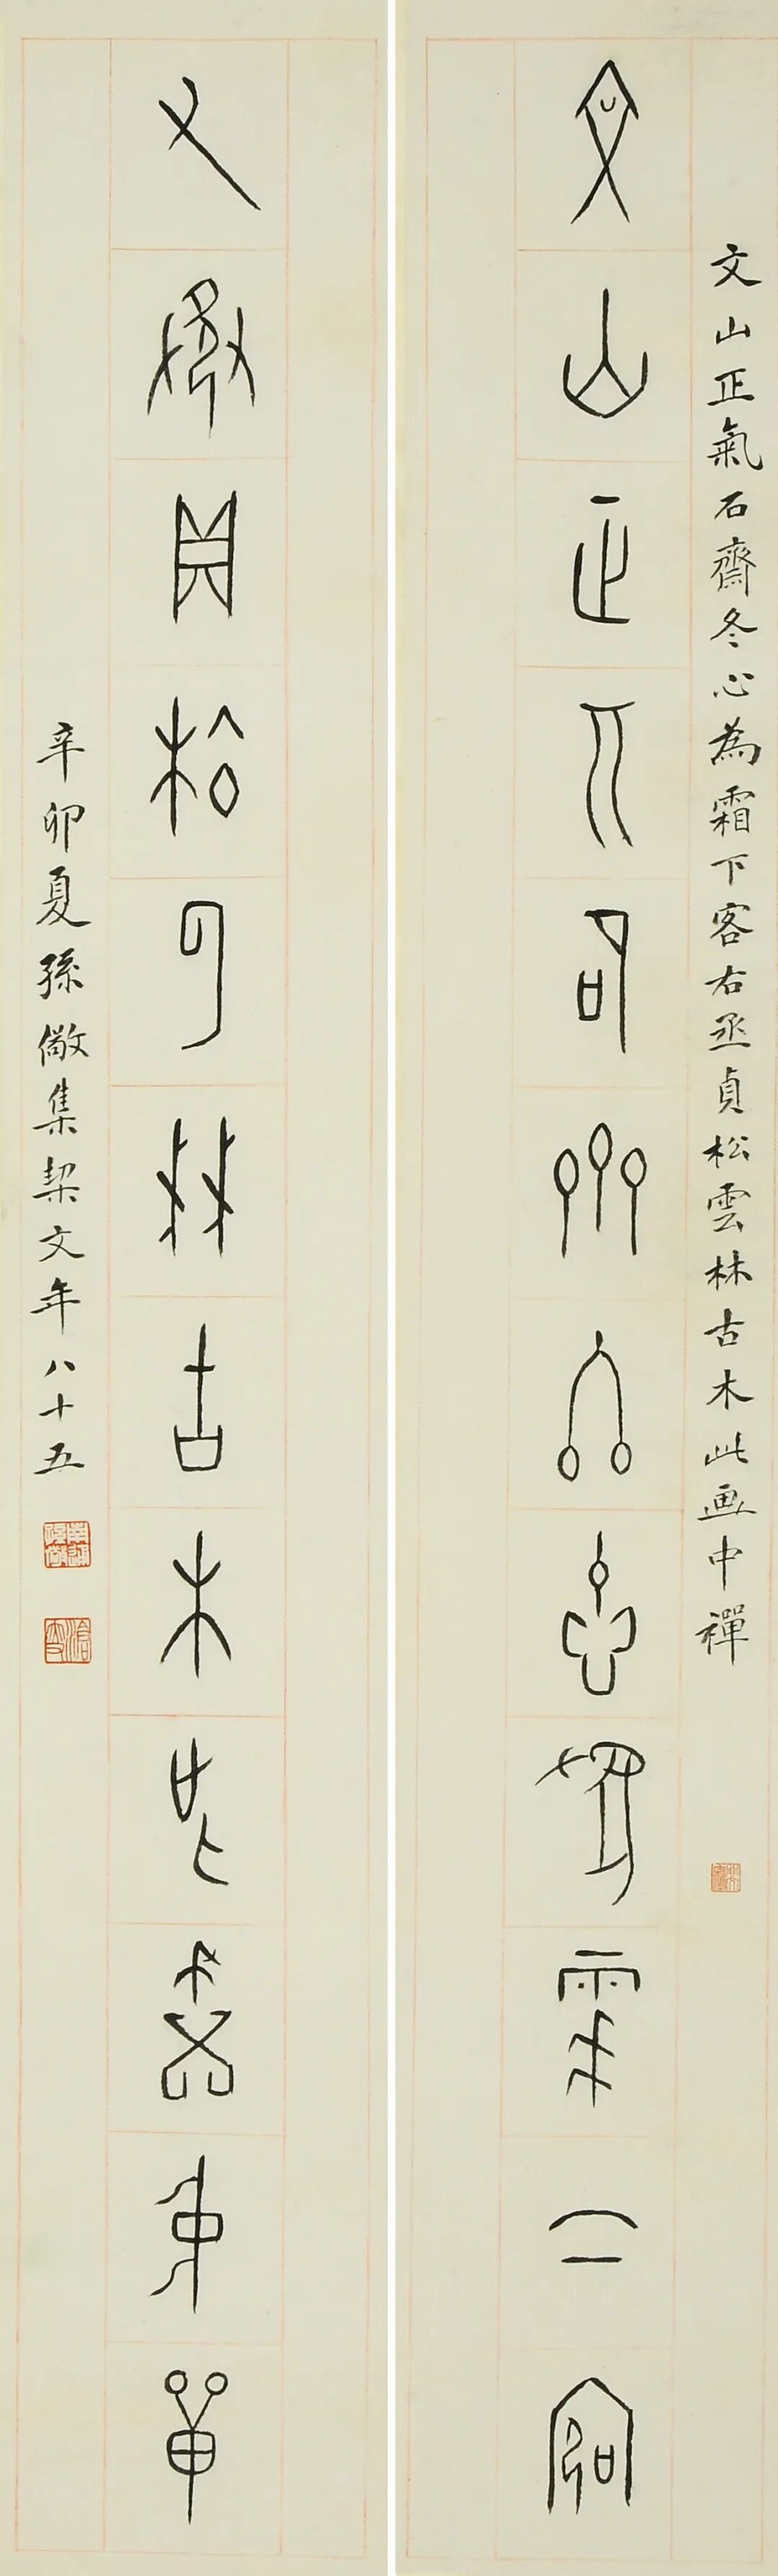 文山正氣石齋冬心為霜下客右丞貞松雲林古木此画中禪
文山正氣石齋冬心為霜下客
右丞貞松雲林古木此画中禪
辛卯夏孫儆集栔文年八十五